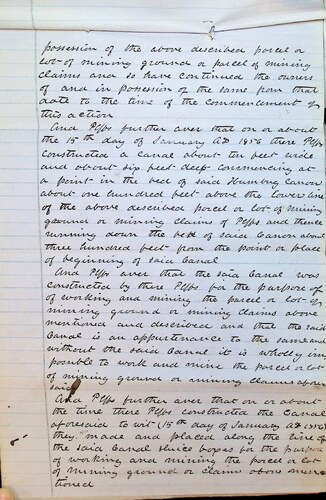 possession of the above described parcel or
lot of mining ground or parcel of mining
claims and so have continued the owners
of and in possession of the same from that
date to the time of the commencement of
this action
And Plffs further aver that on or about
the 15th day of January AD 1856 these Plffs
constructed a Canal about ten feet wide
and about six feet deep commencing at
a point in the bed of said Humbug Canon
about one hundred feet above the lower line
of the above described parcel or lot of mining
ground or mining claims of Plffs and thence
running down the bed of said Canon about
three hundred feet from the point or place
of beginning of said Canal
And Plffs aver that the said Canal was
constructed by these Plffs for the purpose of
of working and mining the parcel or lot of
mining ground or mining claims above
mentioned and described and that the said
Canal is an appurtenance to the same and
without the said Canal it is wholly im
possible to work and mine the parcel or lot
of mining ground or mining claims afore
said
And Plffs further aver that on or about
the time these Plffs constructed the Canal
aforesaid to wit (15th day of January AD 1856)
they made and placed along the line of
the said Canal sluice boxes for the purpose
of working and mining the parcel or lot
of mining ground or claims above men
tioned